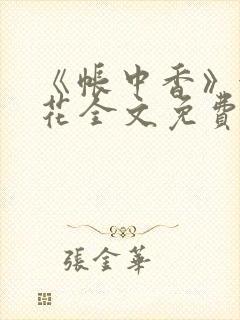 《帳中香》
花全文免費
張金華